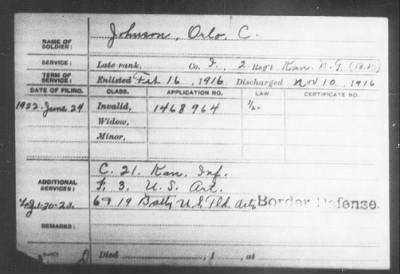 NAME OF SOLDIER: Johnson, Orlo C.
SERVICE: Late rank, Co. I, 2 Reg't Kan. N.G.
TERM OF SERVICE: Enlisted Feb 16, 1916 Discharged Nov 10, 1916
DATE OF FILING. CLASS. APPLICATION NO. LAW. CERTIFICATE NO.
1932-June 24 Invalid, 1468964
Widow,
Minor,
C. 21. Kan. Inf.
ADDITIONAL SERVICES: F. 3. U.S. Art.
69.19 Batty U.S. Fld. Art. Border Defense.
REMARKS:
Died , 1 , at